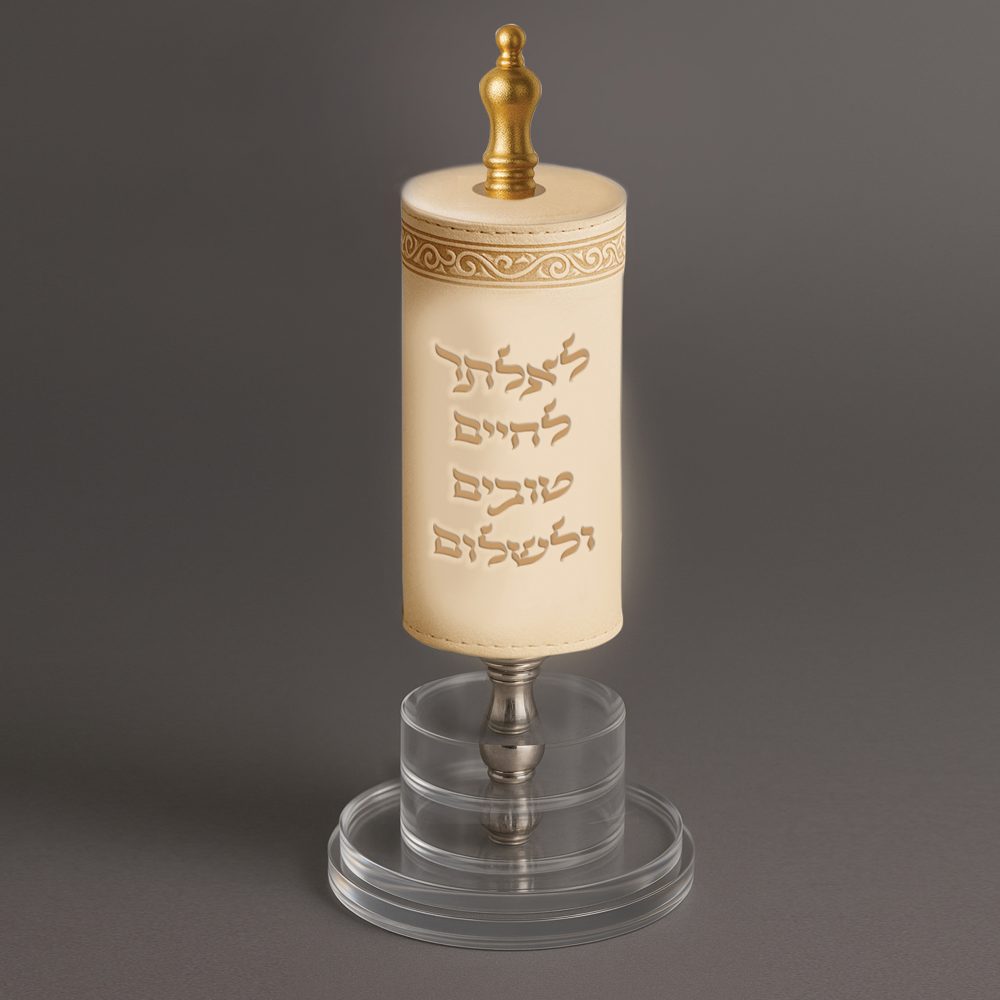 לאלתר
לחיים
טובים
ולשלום